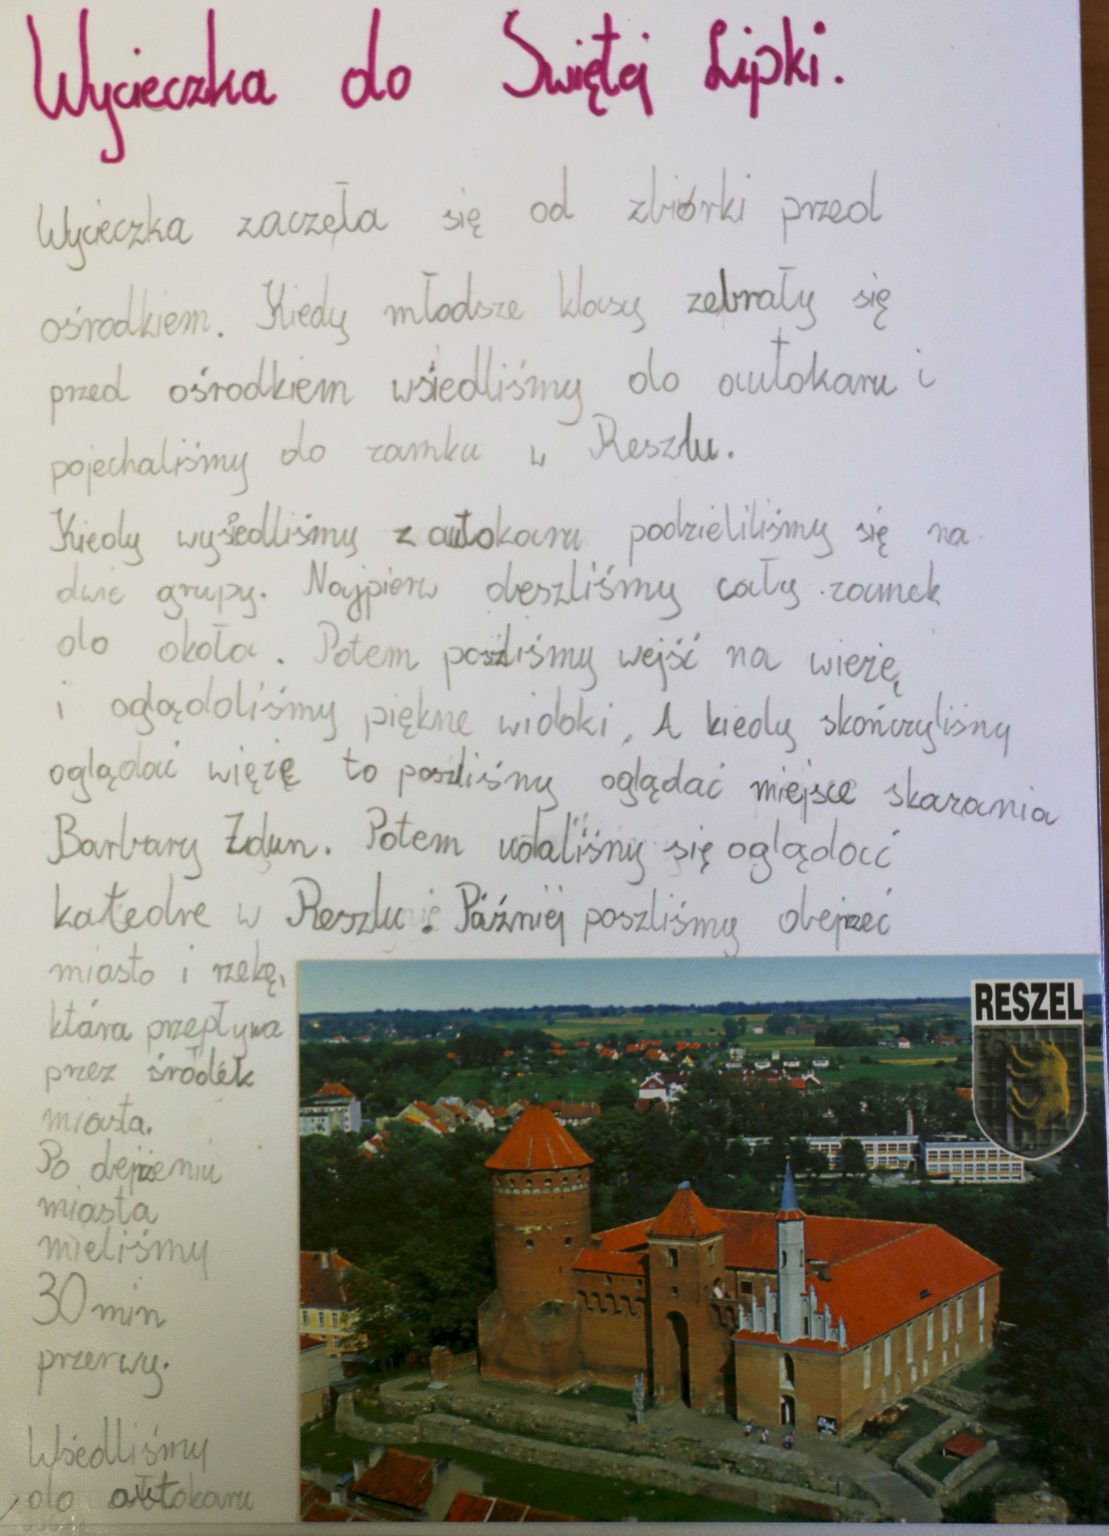 Wycieczka do Świętej Lipki.
Wycieczka zaczęła się od zbiórki przed
ośrodkiem. Kiedy młodsze klasy zebrały się
przed ośrodkiem wsiedliśmy do autokaru i
pojechaliśmy do zamku w Reszlu.
Kiedy wysiedliśmy z autokaru podzieliliśmy się na
dwie grupy. Najpierw obeszliśmy cały zamek
do okoła. Potem poszliśmy wejść na wieżę,
i oglądaliśmy piękne widoki. A kiedy skończyliśmy
oglądać wieżę to poszliśmy oglądać miejsce skazania
Barbary Zdun. Potem udaliśmy się oglądać
katedre w Reszlu. Później poszliśmy obejrzeć
miasto i rzekę,
która przepływa
przez środek
miasta.
Po obejrzeniu
miasta
mieliśmy
30 min
przerwy.
Wsiedliśmy
do autokaru
RESZEL